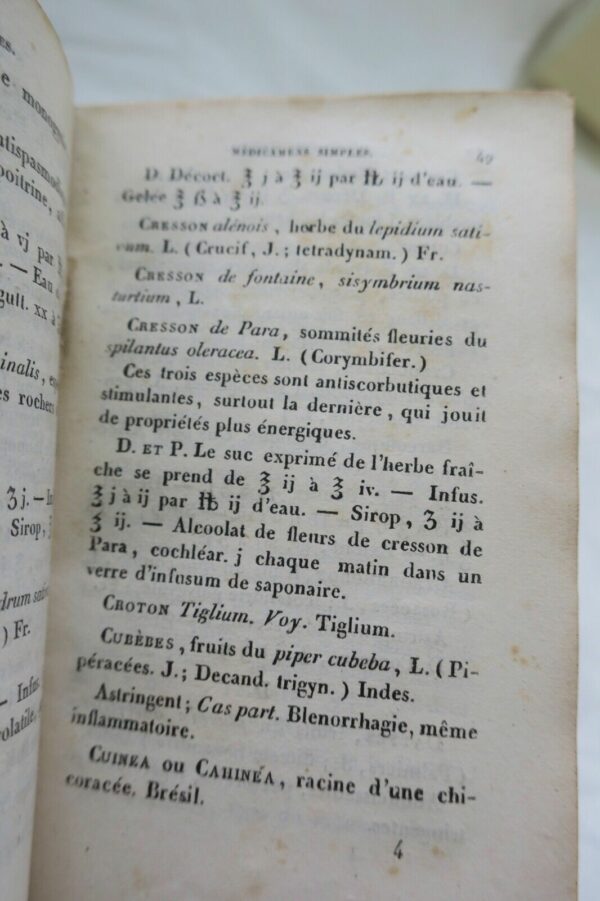 ES.
e monog
ntispasmod
poitrine,
à vj par
. — Eau
gutt. xx à
inalis,
es rochers
ʒ j. — In
Sirop,
drum
) Fr.
— Infus
volatile,
MÉDICAMENS SIMPLES. 49
D. Décoct. ℥ j à ℥ ij par ℔ ij d'eau. —
Gelée ℥ ß à ℥ ij.
CRESSON alénois, herbe du lepidium sati-
vum. L. (Crucif, J.; tetradynam.) Fr.
CRESSON de fontaine, sisymbrium nas-
turtium, L.
CRESSON de Para, sommités fleuries du
spilantus oleracea. L. (Corymbifer.)
Ces trois espèces sont antiscorbutiques et
stimulantes, surtout la dernière, qui jouit
de propriétés plus énergiques.
D. ET P. Le suc exprimé de l'herbe fraî-
che se prend de ℥ ij à ℥ iv. — Infus.
℥ j à ij par ℔ ij d'eau. — Sirop, ʒ ij à
℥ ij. — Alcoolat de fleurs de cresson de
Para, cochléar. j chaque matin dans un
verre d'infusum de saponaire.
CROTON Tiglium. Voy. Tiglium.
CUBÈBES, fruits du piper cubeba, L. (Pi-
péracées. J.; Decand. trigyn.) Indes.
Astringent; Cas part. Blenorrhagie, même
inflammatoire.
CUINEA OU CAHINÉA, racine d'une chi-
coracée. Brésil.
4